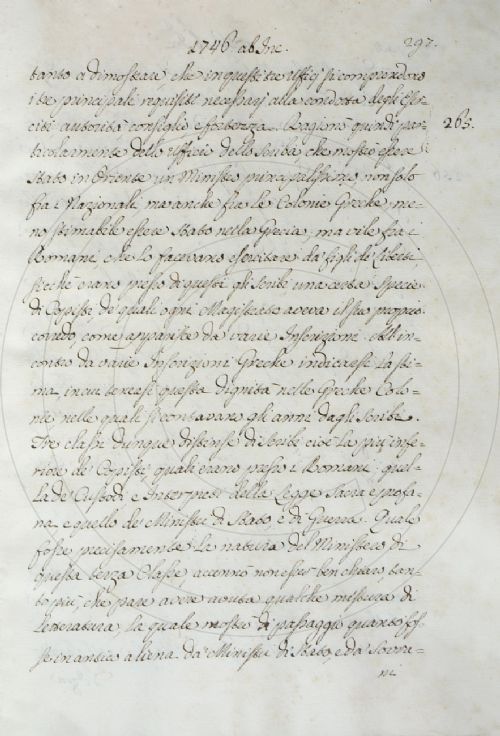 1746 ab Inc.
297.
tanto a dimostrare, che in queste tre Uffizj si comprendono
i tre principali requisiti necessarj alla condotta degli Eser-
citi autorità consiglio e fortezza. Ragionò quindi par-
265.
ticolarmente dell' Uffizio dello Scriba, che mostrò essere
stato in Oriente un Ministro principalissimo, non solo
fra i Nazionali, ma anche fra le Colonie Greche, me-
no stimabile essere stato nella Grecia, ma vile fra i
Romani, che lo facevano esercitare da figli di Liberti,
sicchè erano presso di questi gli Scribi una certa specie
di Copisti de' quali ogni Magistrato aveva il suo proprio
come apparisce da varie Inscrizioni. All' in-
contro da varie Inscrizioni Greche indicarsi la sti-
ma, in cui tenease questa dignità nelle Greche Colo-
nie nelle quali si contavano gli anni dagli Scribi.
Tre classi dunque distinse di Scribi cioè la più infe-
riore de' Copisti, quali erano presso i Romani, quel-
la de' Custodi e Interpreti della Legge Sacra e profa-
na, e quello de' Ministri di Stato e di Guerra. Quale
fosse precisamente la natura del Ministero di
questa terza Classe accennò non esser ben chiaro, tan-
to più, che pare avere avuta qualche mistura di
Letteratura, la quale mostrò di passaggio quanto fos-
se in antico aliena da' Ministri di Stato, e da Sovra-
ni